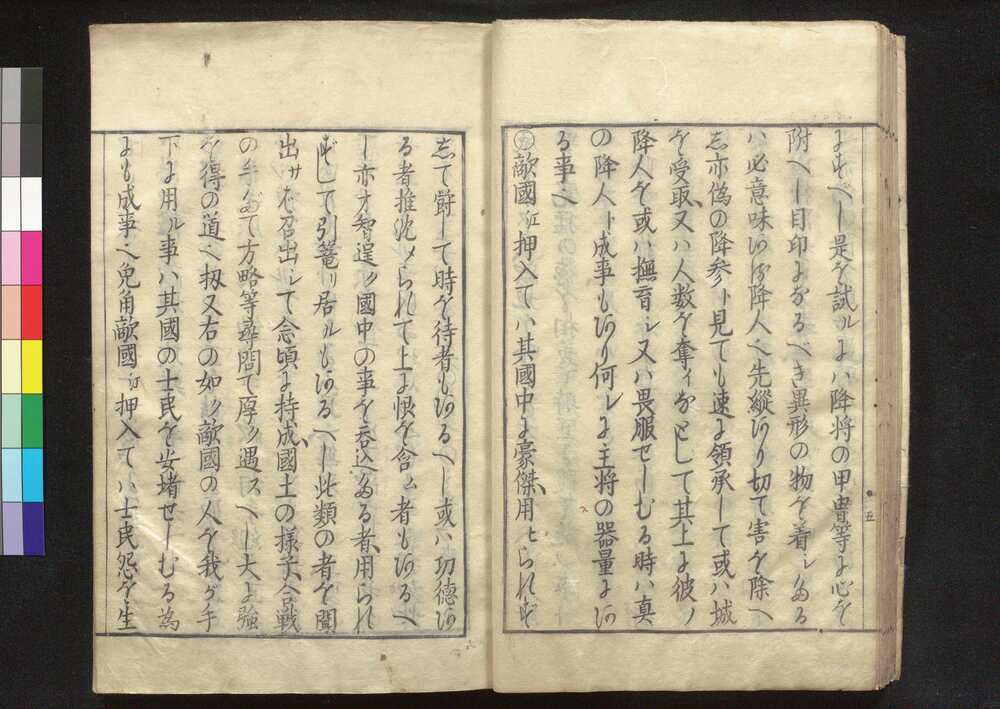 よすべし是を試ルにハ降将の甲冑等に心を
附へし目印になるべき異形の物を着したる
ハ必意味有ル降人へ先縦あり切て害を除へ
し亦偽の降参ト見ても速に領承して或ハ城
を受取又ハ人数を奪ィなどして其上に彼ノ
降人を或ハ撫育シ又ハ畏服せしむる時ハ真
の降人ト成事もあり何レに主将の器量にあ
る事也
敵國江押入てハ其國中に豪傑用ヒられず
して欝して時を待者もあるへし或ハ功徳あ
る者推沈メられて上に恨を含ム者もあるへ
し亦才智逞ク國中の事を呑込たる者用られ
ずして引篭リ居ルもあるへし此類の者を聞
出サば召出シて念頃に持成國土の様子合戦
の手だて方略等尋問て厚ク遇スへし大に強
を得の道也扨又右の如ク敵國の人を我が手
下に用ル事ハ其國の士民を安堵せしむる為
にも成事也兎角敵國江押入てハ士民怨を生
五